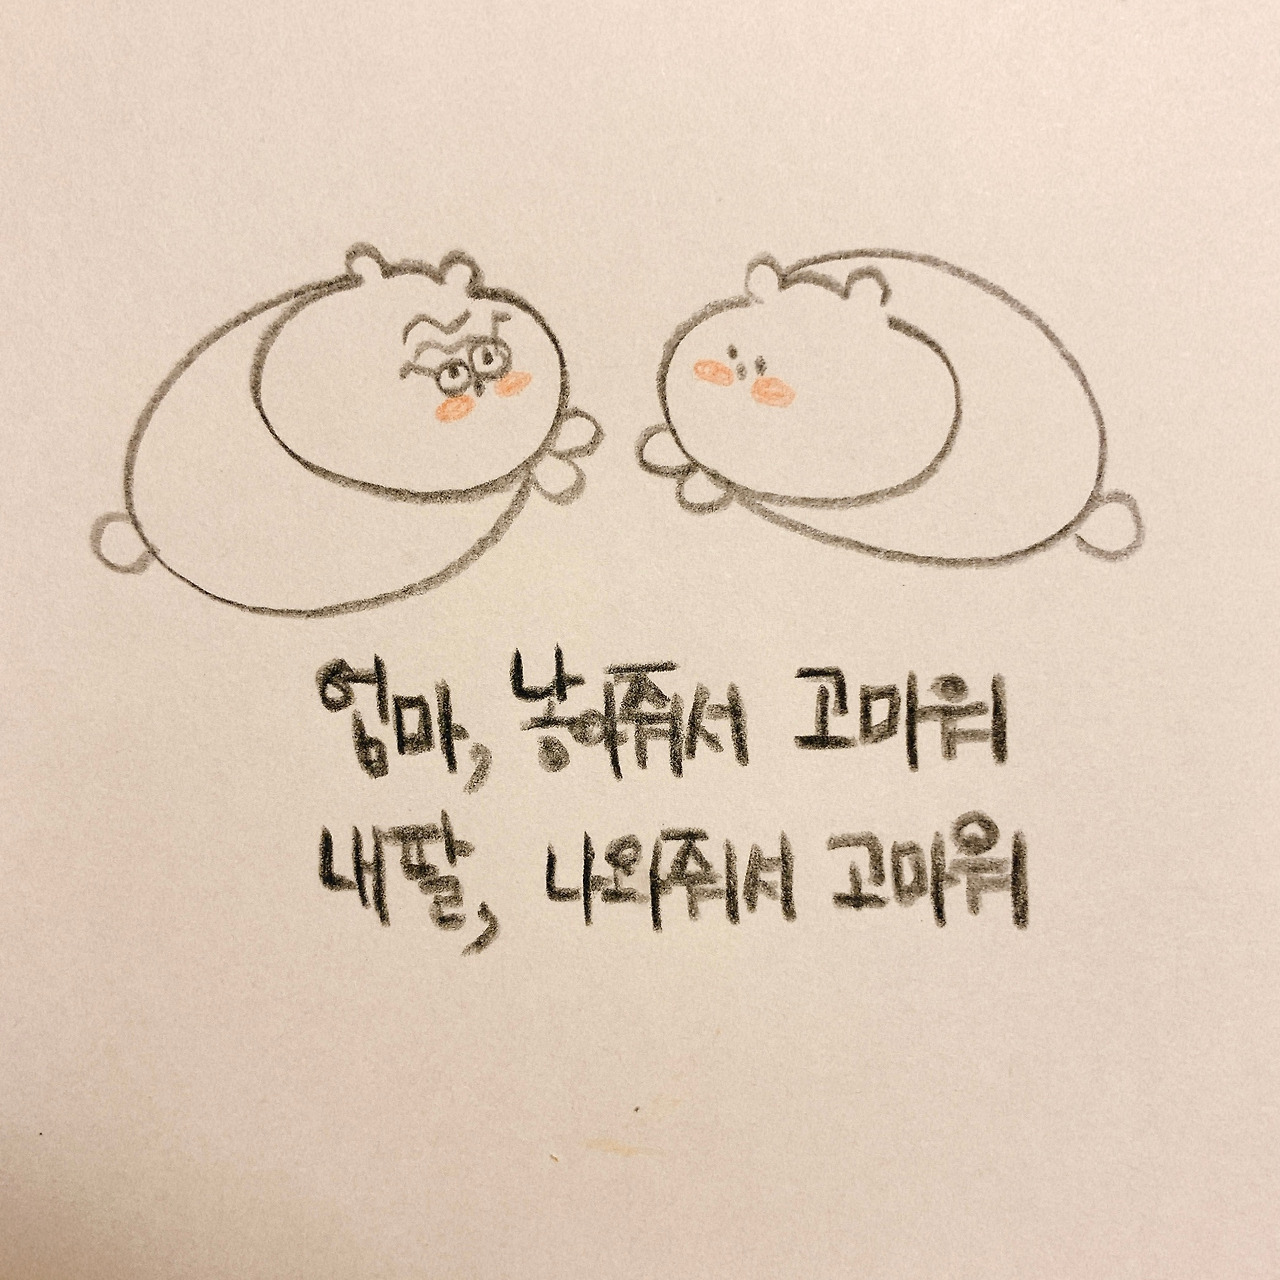 엄마, 낳아줘서 고마워
내팔, 나와줘서 고마워